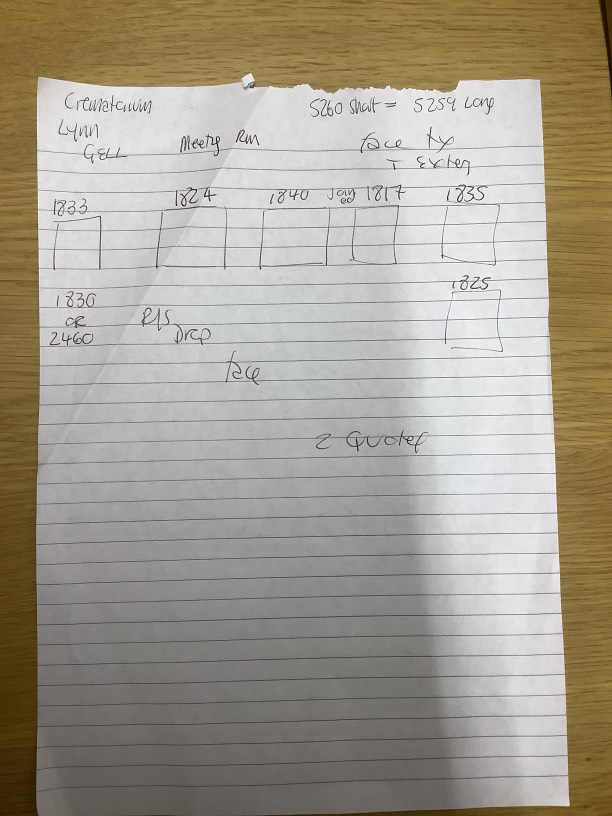 Crematorium
5260 short = 5259 Long
Lynn
GELL
Meetg Rm
face
1833
1824
1840
Joined
1817
1835
1830
OR
2460
R/S
Drop
1825
face
2 Quotes